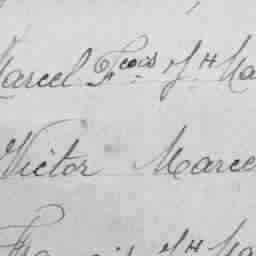 Marcel Fcois of H Ma
Victor Marce
Francis of H Ma